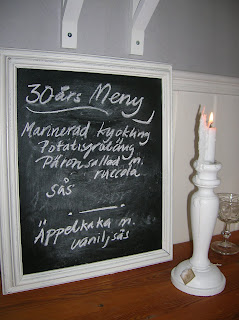 30 års Meny
Marinerad kyckling
Potatisgratäng
Päronsallad m.
ruccola
sås
Äppelkaka m.
vaniljsås